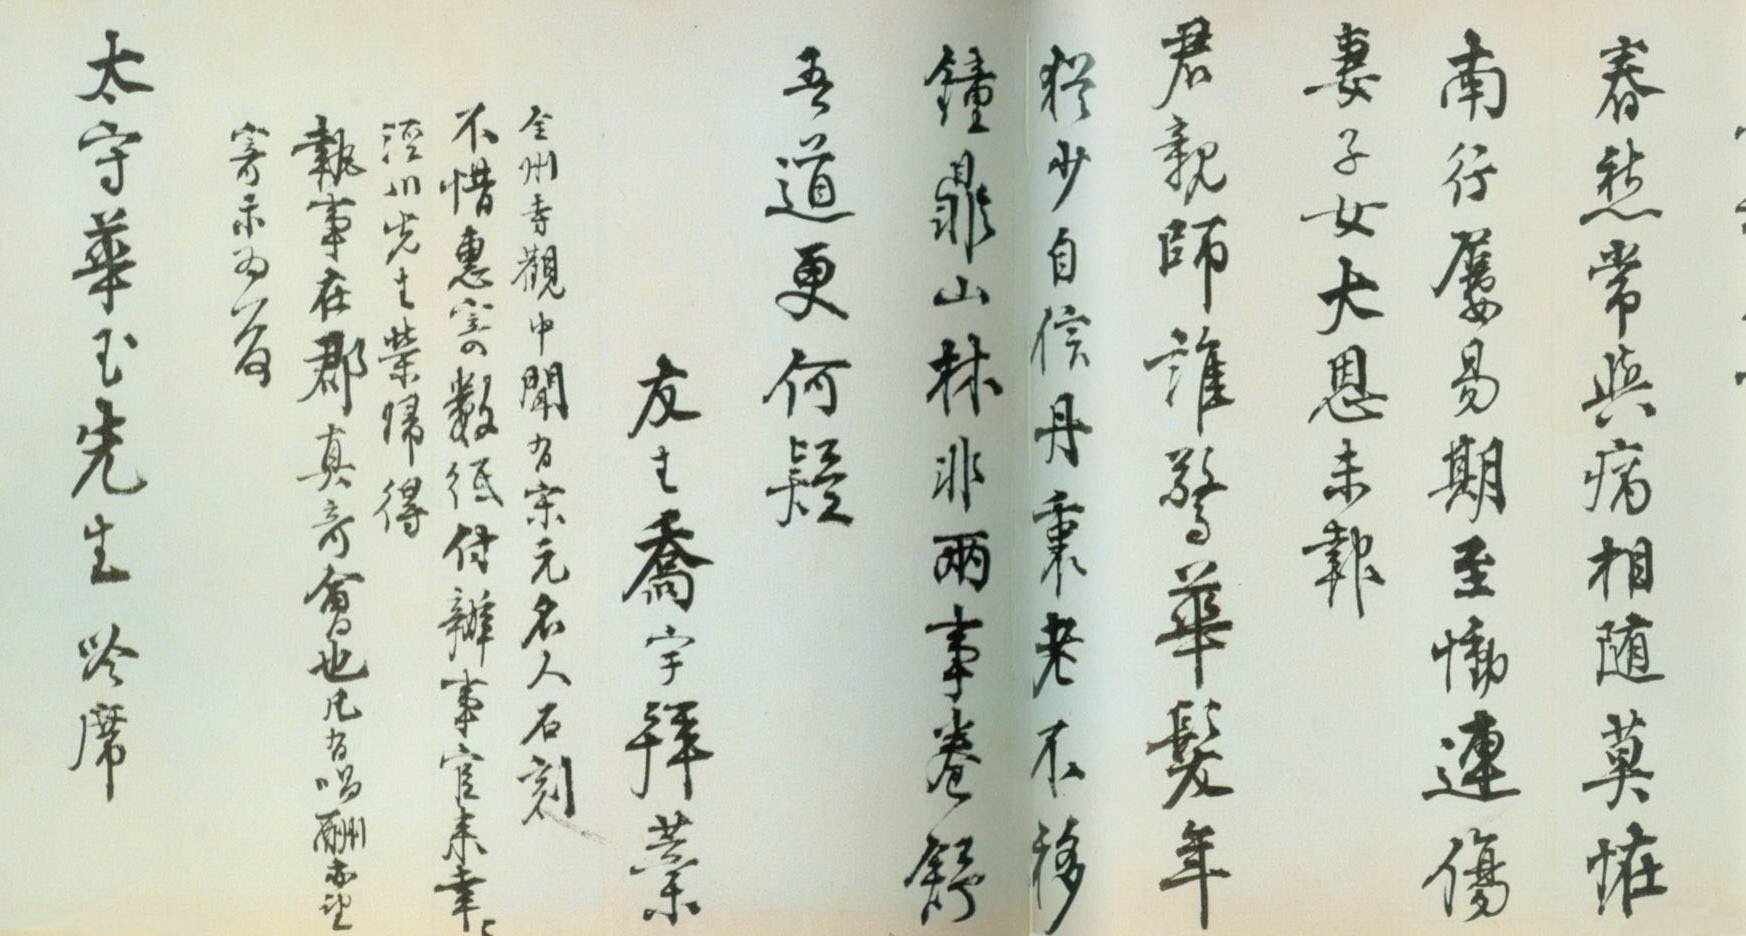 春愁常與病相随莫怪
南行屢易期至慟連傷
妻子女大恩未報
君親師誰驚華髮年
猶少自信丹衷老不移
鐘鼎山林非兩事卷舒
吾道更何疑
友生喬宇拜藁
全州寺觀中聞有宋元名人石刻
不惜惠寄數紙付辦事官来幸
涇川先生榮歸得
執事在郡真奇會也凡有唱酬亦望
寄示為荷
太守華玉先生吟席